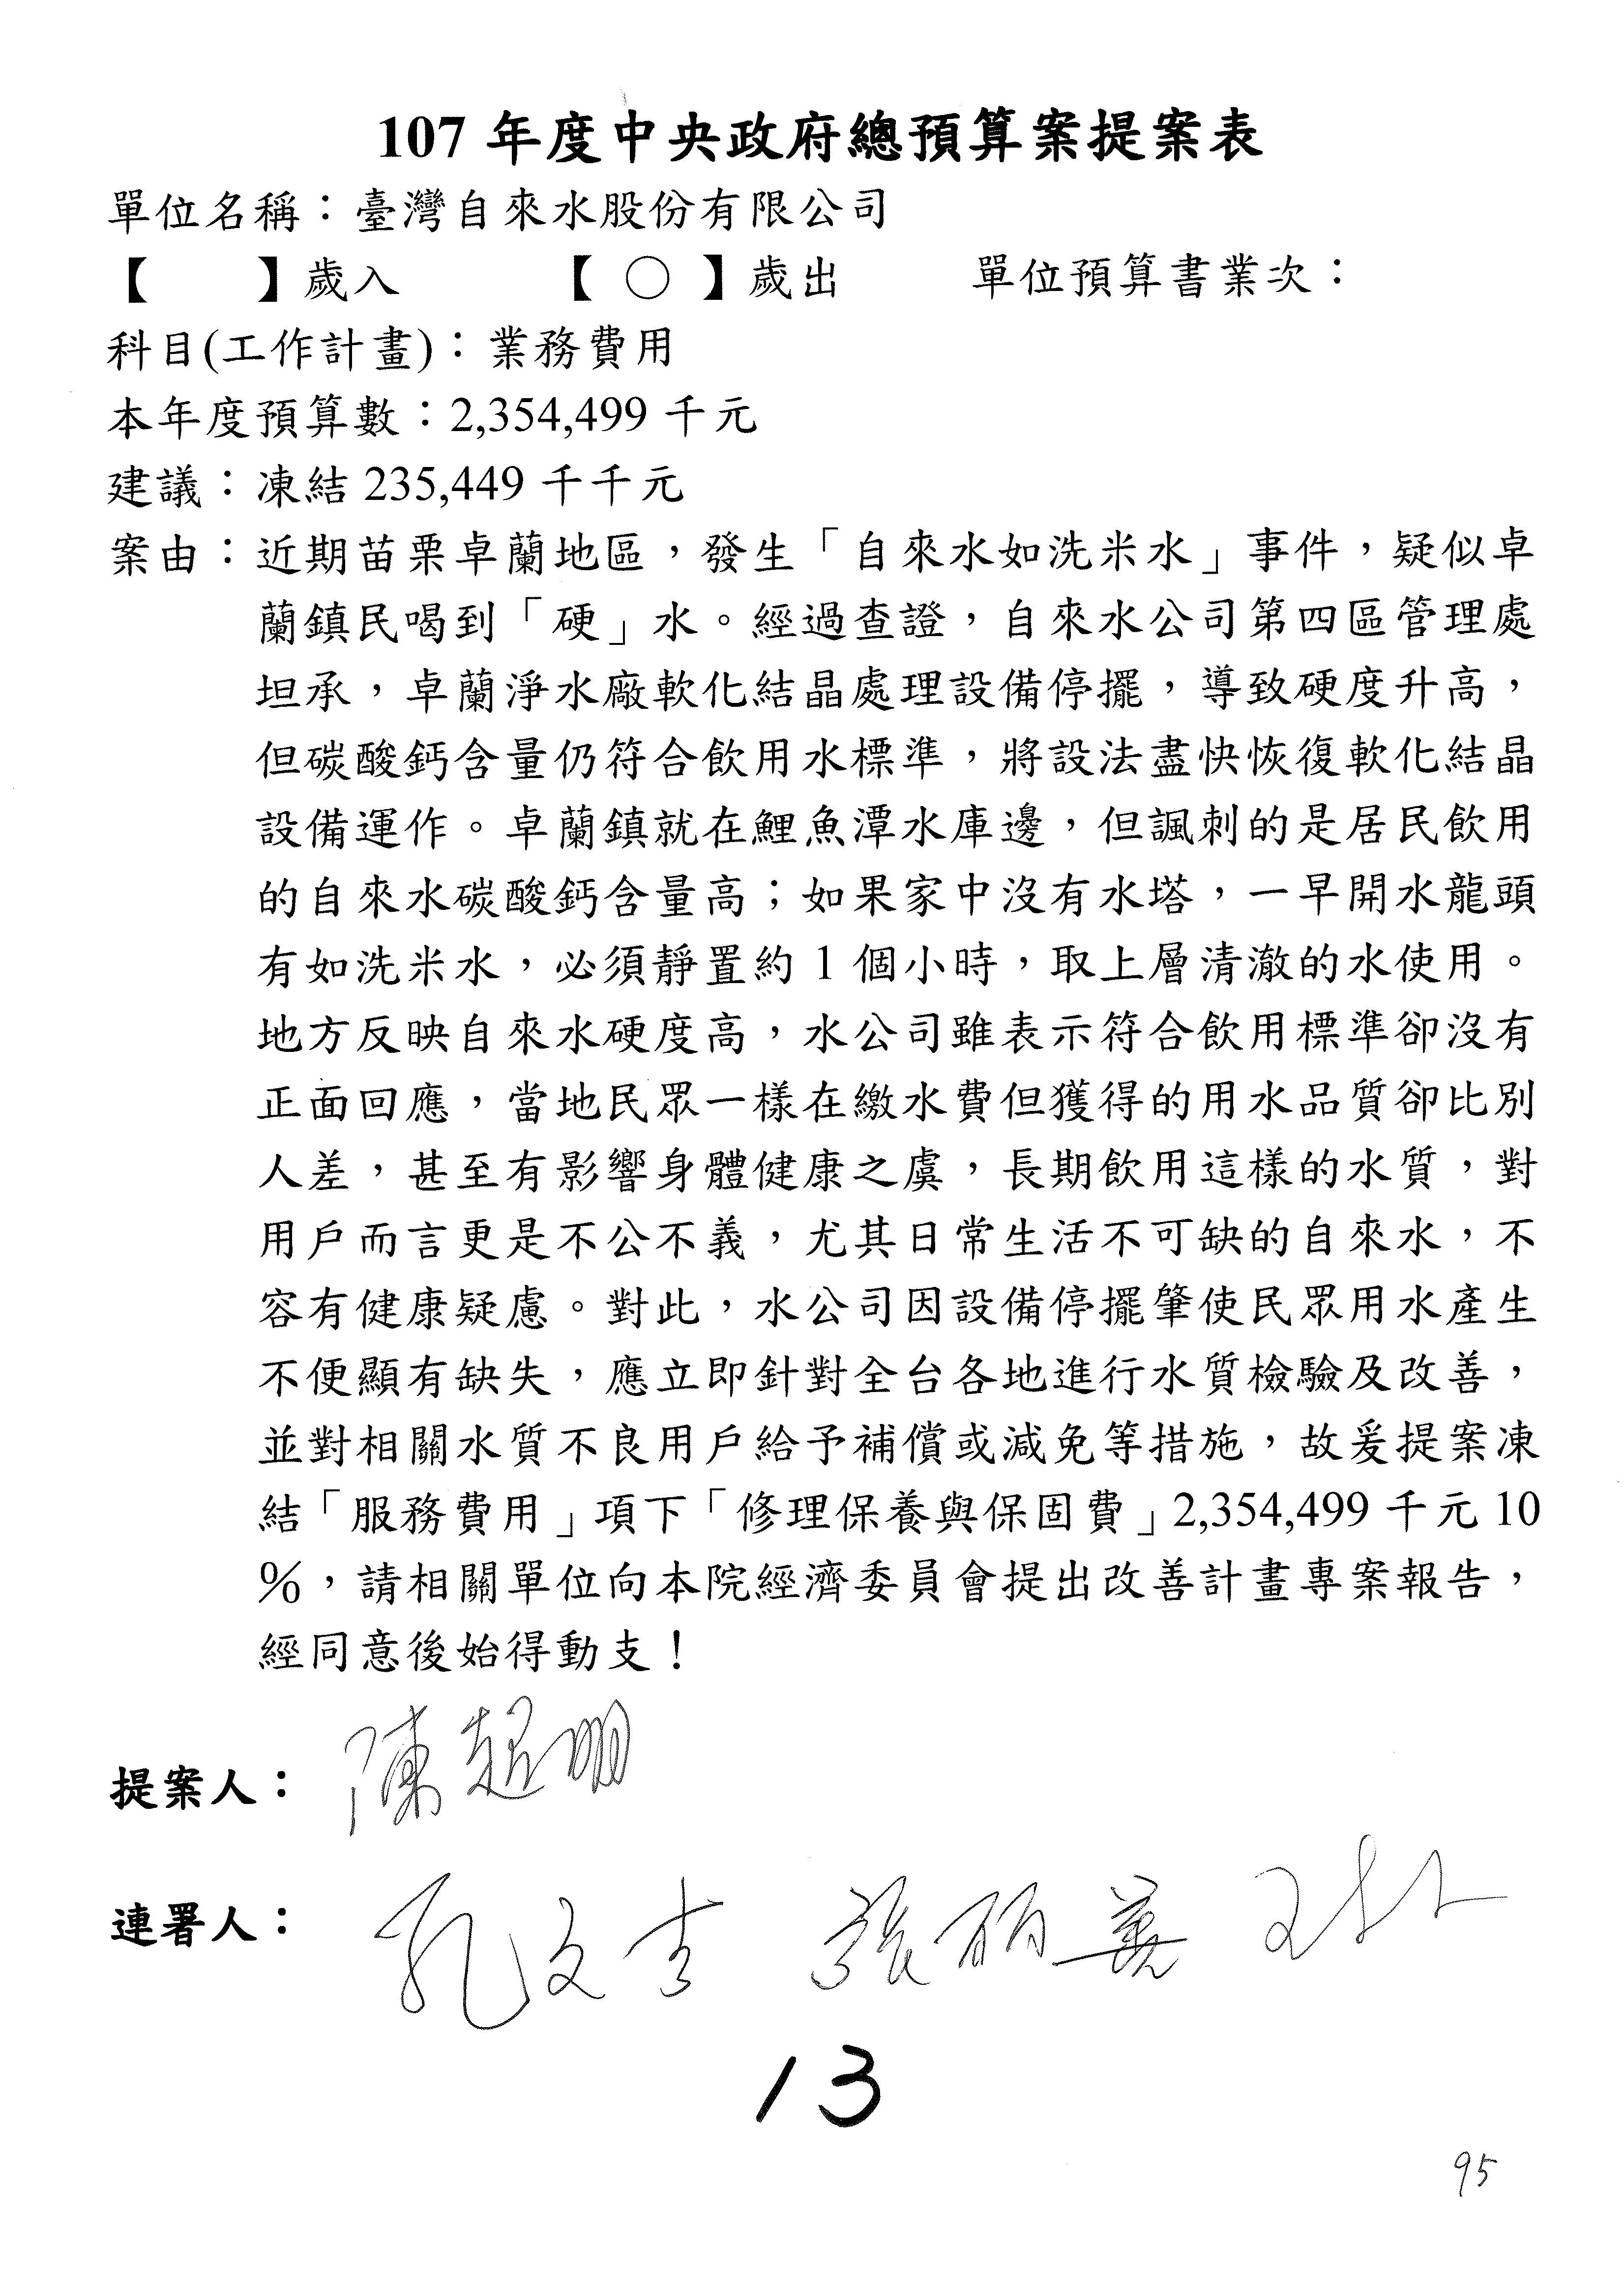 107 年度中央政府總預算案提案表
單位名稱：臺灣自來水股份有限公司
【　　】歲入　　　【 ○ 】歲出　　　單位預算書業次：
科目(工作計畫)：業務費用
本年度預算數：2,354,499 千元
建議：凍結 235,449 千千元
案由：近期苗栗卓蘭地區，發生「自來水如洗米水」事件，疑似卓
蘭鎮民喝到「硬」水。經過查證，自來水公司第四區管理處
坦承，卓蘭淨水廠軟化結晶處理設備停擺，導致硬度升高，
但碳酸鈣含量仍符合飲用水標準，將設法盡快恢復軟化結晶
設備運作。卓蘭鎮就在鯉魚潭水庫邊，但諷刺的是居民飲用
的自來水碳酸鈣含量高；如果家中沒有水塔，一早開水龍頭
有如洗米水，必須靜置約 1 個小時，取上層清澈的水使用。
地方反映自來水硬度高，水公司雖表示符合飲用標準卻沒有
正面回應，當地民眾一樣在繳水費但獲得的用水品質卻比別
人差，甚至有影響身體健康之虞，長期飲用這樣的水質，對
用戶而言更是不公不義，尤其日常生活不可缺的自來水，不
容有健康疑慮。對此，水公司因設備停擺肇使民眾用水產生
不便顯有缺失，應立即針對全台各地進行水質檢驗及改善，
並對相關水質不良用戶給予補償或減免等措施，故爰提案凍
結「服務費用」項下「修理保養與保固費」2,354,499 千元 10
%，請相關單位向本院經濟委員會提出改善計畫專案報告，
經同意後始得動支！
提案人：陳超明
連署人：孔文吉 張麗善
13
95